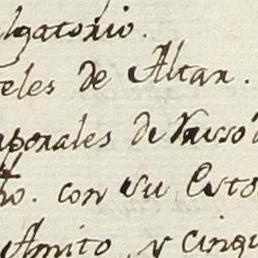 lgatorio.
eles de Altar.
porales de
tho. con su Esto
Amito, y cinqu